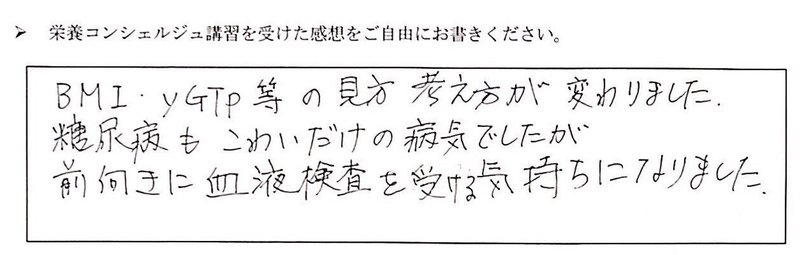 ➢ 栄養コンシェルジュ講習を受けた感想をご自由にお書きください。
BMI・yGTp等の見方 考え方が変わりました.
糖尿病もこわいだけの病気でしたが
前向きに血液検査を受ける気持ちになりました.